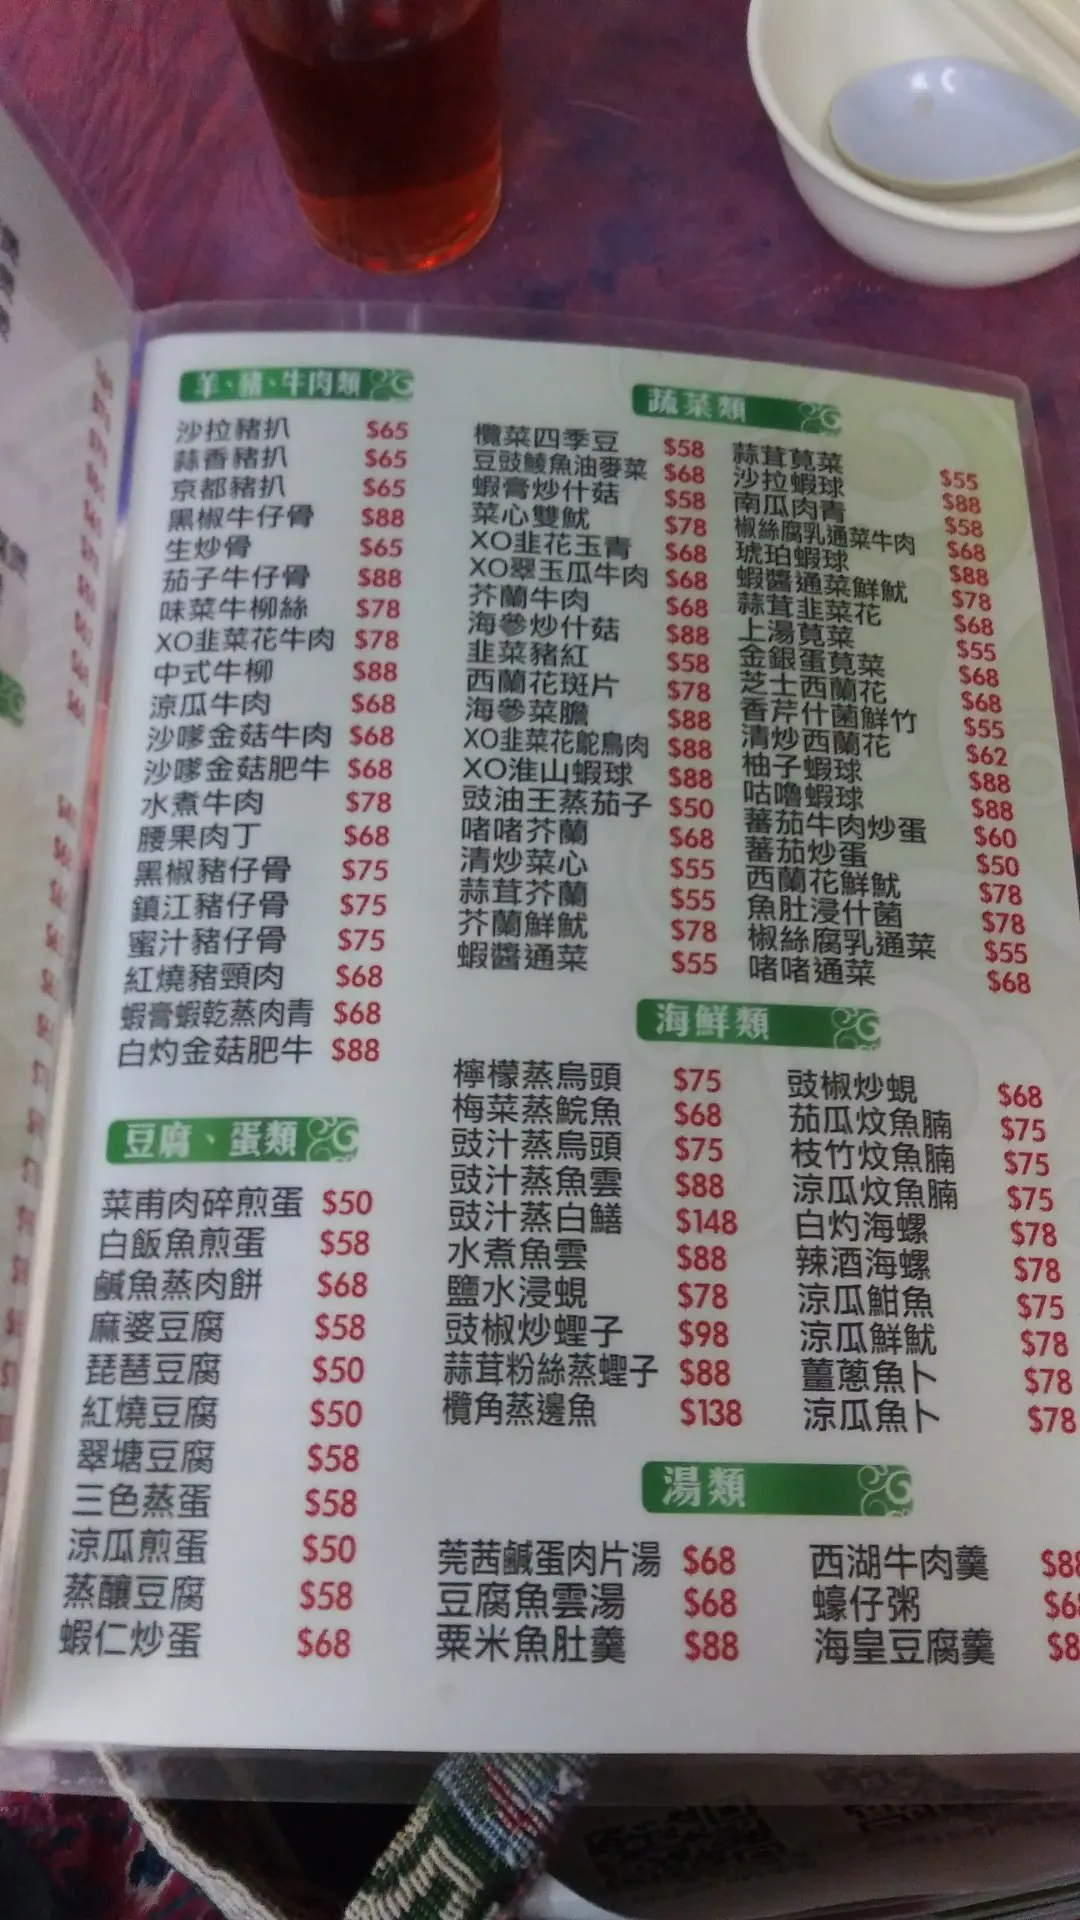 羊、豬、牛肉類
沙拉豬扒 $65
蒜香豬扒 $65
京都豬扒 $65
黑椒牛仔骨 $88
生炒骨 $65
茄子牛仔骨 $88
味菜牛柳絲 $78
XO韭菜花牛肉 $78
中式牛柳 $88
涼瓜牛肉 $68
沙嗲金菇牛肉 $68
沙嗲金菇肥牛 $68
水煮牛肉 $78
腰果肉丁 $68
黑椒豬仔骨 $75
鎮江豬仔骨 $75
蜜汁豬仔骨 $75
紅燒豬頸肉 $68
蝦膏蝦乾蒸肉青 $68
白灼金菇肥牛 $88
豆腐、蛋類
菜甫肉碎煎蛋 $50
白飯魚煎蛋 $58
鹹魚蒸肉餅 $68
麻婆豆腐 $58
琵琶豆腐 $50
紅燒豆腐 $50
翠塘豆腐 $58
三色蒸蛋 $58
涼瓜煎蛋 $50
蒸釀豆腐 $58
蝦仁炒蛋 $68
蔬菜類
欖菜四季豆 $58
豆豉鯪魚油麥菜 $68
蝦膏炒什菇 $58
菜心雙魷 $78
XO韭花玉青 $68
XO翠玉瓜牛肉 $68
芥蘭牛肉 $68
海參炒什菇 $88
韭菜豬紅 $58
西蘭花斑片 $78
海參菜膽 $88
XO韭菜花鴕鳥肉 $88
XO淮山蝦球 $88
豉油王蒸茄子 $50
啫啫芥蘭 $68
清炒菜心 $55
蒜茸芥蘭 $55
芥蘭鮮魷 $78
蝦醬通菜 $55
蒜茸莧菜 $55
沙拉蝦球 $88
南瓜肉青 $58
椒絲腐乳通菜牛肉 $68
琥珀蝦球 $88
蝦醬通菜鮮魷 $78
蒜茸韭菜花 $68
上湯莧菜 $55
金銀蛋莧菜 $68
芝士西蘭花 $68
香芹什菌鮮竹 $55
清炒西蘭花 $62
柚子蝦球 $88
咕嚕蝦球 $88
蕃茄牛肉炒蛋 $60
蕃茄炒蛋 $50
西蘭花鮮魷 $78
魚肚浸什菌 $78
椒絲腐乳通菜 $55
啫啫通菜 $68
海鮮類
檸檬蒸烏頭 $75
梅菜蒸鯇魚 $68
豉汁蒸烏頭 $75
豉汁蒸魚雲 $88
豉汁蒸白鱔 $148
水煮魚雲 $88
鹽水浸蜆 $78
豉椒炒蟶子 $98
蒜茸粉絲蒸蟶子 $88
欖角蒸邊魚 $138
豉椒炒蜆 $68
茄瓜炆魚腩 $75
枝竹炆魚腩 $75
涼瓜炆魚腩 $75
白灼海螺 $78
辣酒海螺 $78
涼瓜魽魚 $75
涼瓜鮮魷 $78
薑蔥魚卜 $78
涼瓜魚卜 $78
湯類
莞茜鹹蛋肉片湯 $68
豆腐魚雲湯 $68
粟米魚肚羹 $88
西湖牛肉羹 $88
蠔仔粥 $6
海皇豆腐羹 $8